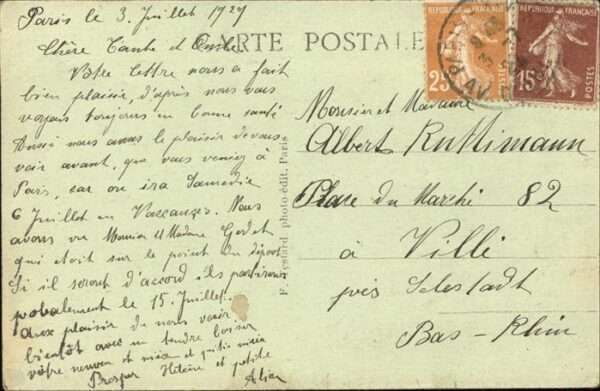 Paris le 3 Juillet 1929
Chère Tante et Oncle
Votre lettre nous a fait
bien plaisir, d'après nous vous
voyons toujours en bonne santé
Aussi nous avons le plaisir de vous
voir avant, que vous veniez à
Paris, car on ira Samedie
6 Juillet en Vaccances. Nous
avons vu Monsieur et Madame Godet
qui étoit sur le point du départ
Si il seront d'accord ils partirons
probalement le 15 Juillet.
Aux plaisir de nous voir
bientôt avec un tendre baiser
vôtre neveu et nièce et petite nièce
Prosper et petite
CARTE POSTALE
F. photo-édit. Paris
25
RÉPUBLIQUE FRANÇAISE
15
POSTES
Monsieur et Madame
Albert Ruttimann
Place du Marché 82
à Villé
près Selestadt
Bas-Rhin